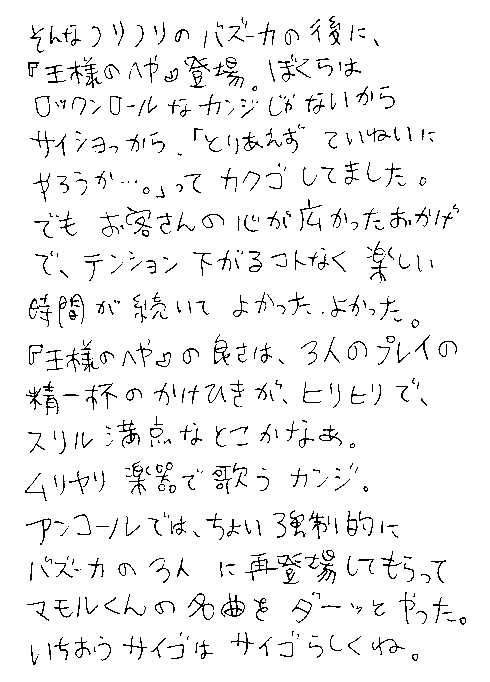 そんなノリノリのバズーカの後に、
『王様のへや』登場。ぼくらは
ロックンロールなカンジじゃないから
サイショっから、「とりあえず ていねいに
やろうか…。」って カクゴ してました。
でも お客さんの心が広かったおかげ
で、テンション 下がるコトなく 楽しい
時間が 続いて よかった、よかった。
『王様のへや』の良さは、3人のプレイの
精一杯のかけひきが、ヒリヒリで、
スリル満点なとこかなあ。
ムリヤリ 楽器で歌う カンジ。
アンコールでは、ちょい強制的に
バズーカの3人 に再登場してもらって
マモルくんの名曲を ダーッと やった。
いちおう サイゴは サイゴらしくね。